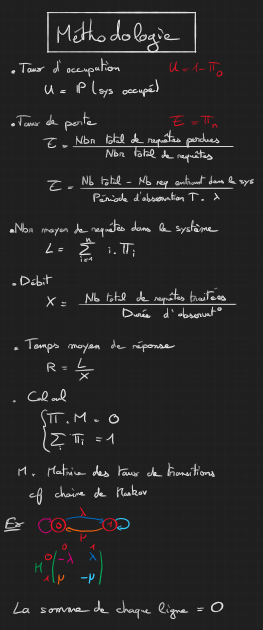 Méthodologie
• Taux d'occupation U = 1 - π₀
U = P (sys occupé)
• Taux de perte τ = πₙ
τ = Nbr total de requêtes perdues / Nbr total de requêtes
τ = Nb total - Nb req entrant dans le sys / Période d'observation T. λ
• Nbr moyen de requêtes dans le système
L = Σ i=1 n i. πᵢ
• Débit
X = Nb total de requêtes traitées / Durée d'observat°
• Temps moyen de réponse
R = L / X
• Calcul
{ π . M = 0
Σ i πᵢ = 1
M. Matrice des taux de transitions
cf chaîne de Markov
Ex λ
0 1
μ
0 1
M 0 ( -λ λ )
1 ( μ -μ )
La somme de chaque ligne = 0